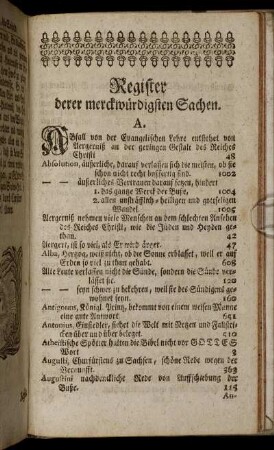 Register
derer merckwürdigsten Sachen.
A.
Abfall von der Evangelischen Lehre entstehet von
Aergerniß an der geringen Gestalt des Reiches
Christi 48
Absolution, äusserliche, darauf verlassen sich die meisten, ob sie
schon nicht recht bußfertig sind. 1002
— — äusserliches Vertrauen darauf setzen, hindert
1. das gantze Werck der Busse. 1004
2. allen unsträfflich-heiligen und gottseligen
Wandel. 1005
Aergerniß nehmen viele Menschen an dem schlechten Ansehen
des Reiches Christi, wie die Jüden und Heyden ge-
than. 42
Aergert, ist so viel, als Er wird ärger. 47
Alba, Hertzog, weiß nicht, ob die Sonne verblasset, weil er auf
Erden so viel zu thun gehabt. 608
Alte Leute verlassen nicht die Sünde, sondern die Sünde ver-
lässet sie. 120
— — seyn schwer zu bekehren, weil sie des Sündigens ge-
wohnet seyn. 160
Antigonus, Königl. Printz, bekommt von einem weisen Manne
eine gute Antwort. 651
Antonius, Einsiedler, siehet die Welt mit Netzen und Fallstri-
cken über und über beleget. 510
Atheistische Spötter halten die Bibel nicht vor GOTTES
Wort 8
Augusti, Churfürstens zu Sachsen, schöne Rede wegen der
363
Augustini nachdenckliche Rede von Aufschiebung der
Busse. 115
Au-